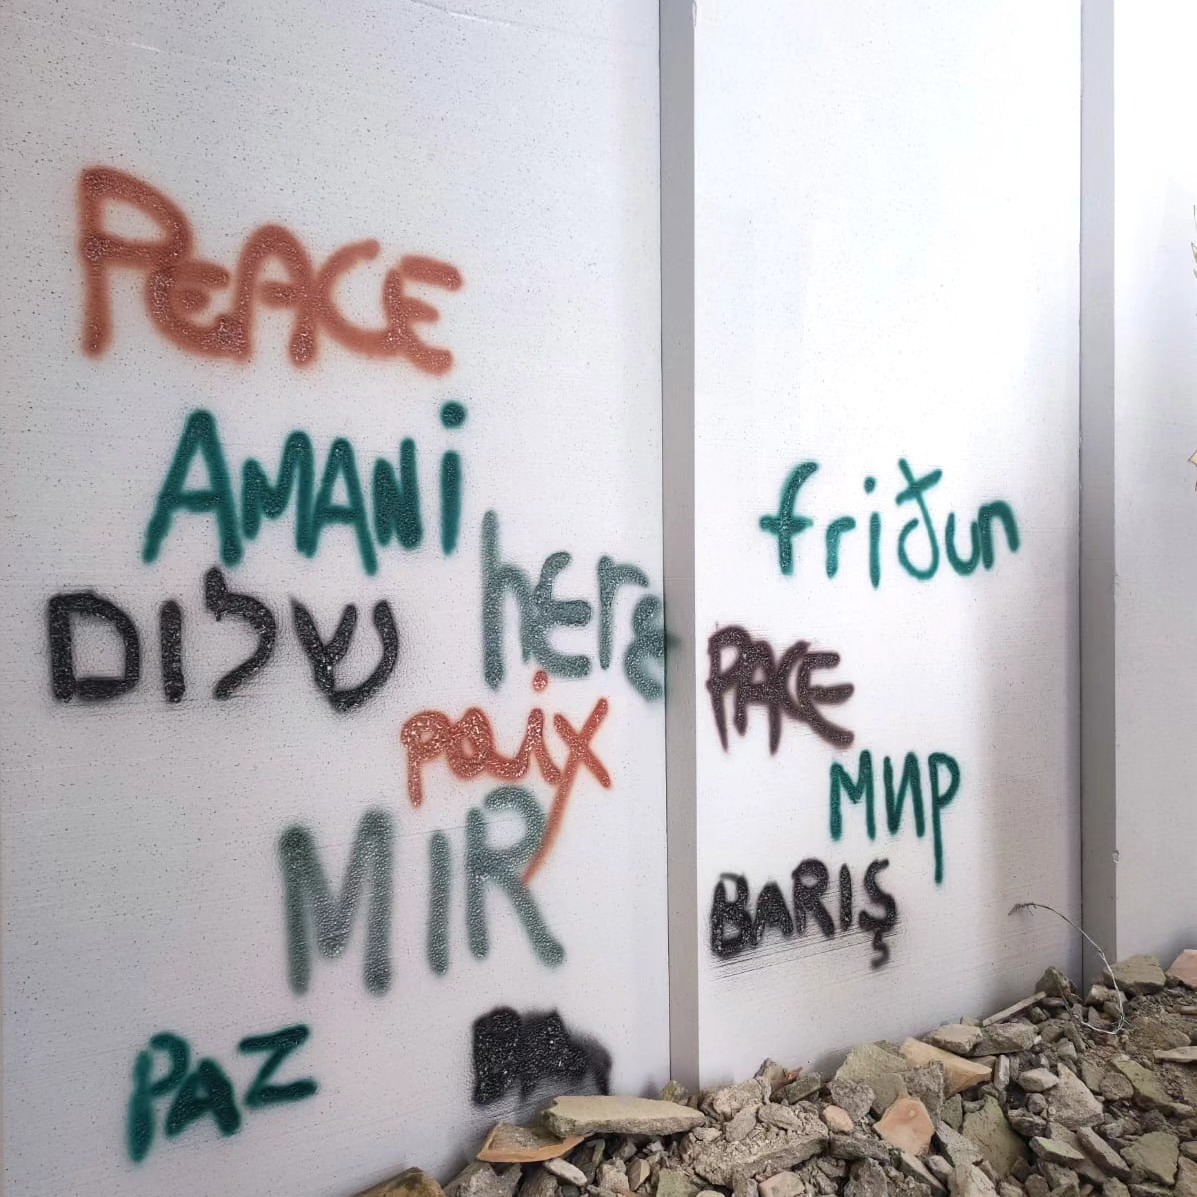 PEACE
AMANi
שלום
here
paix
MIR
PAZ
friðun
PACE
мир
BARIŞ